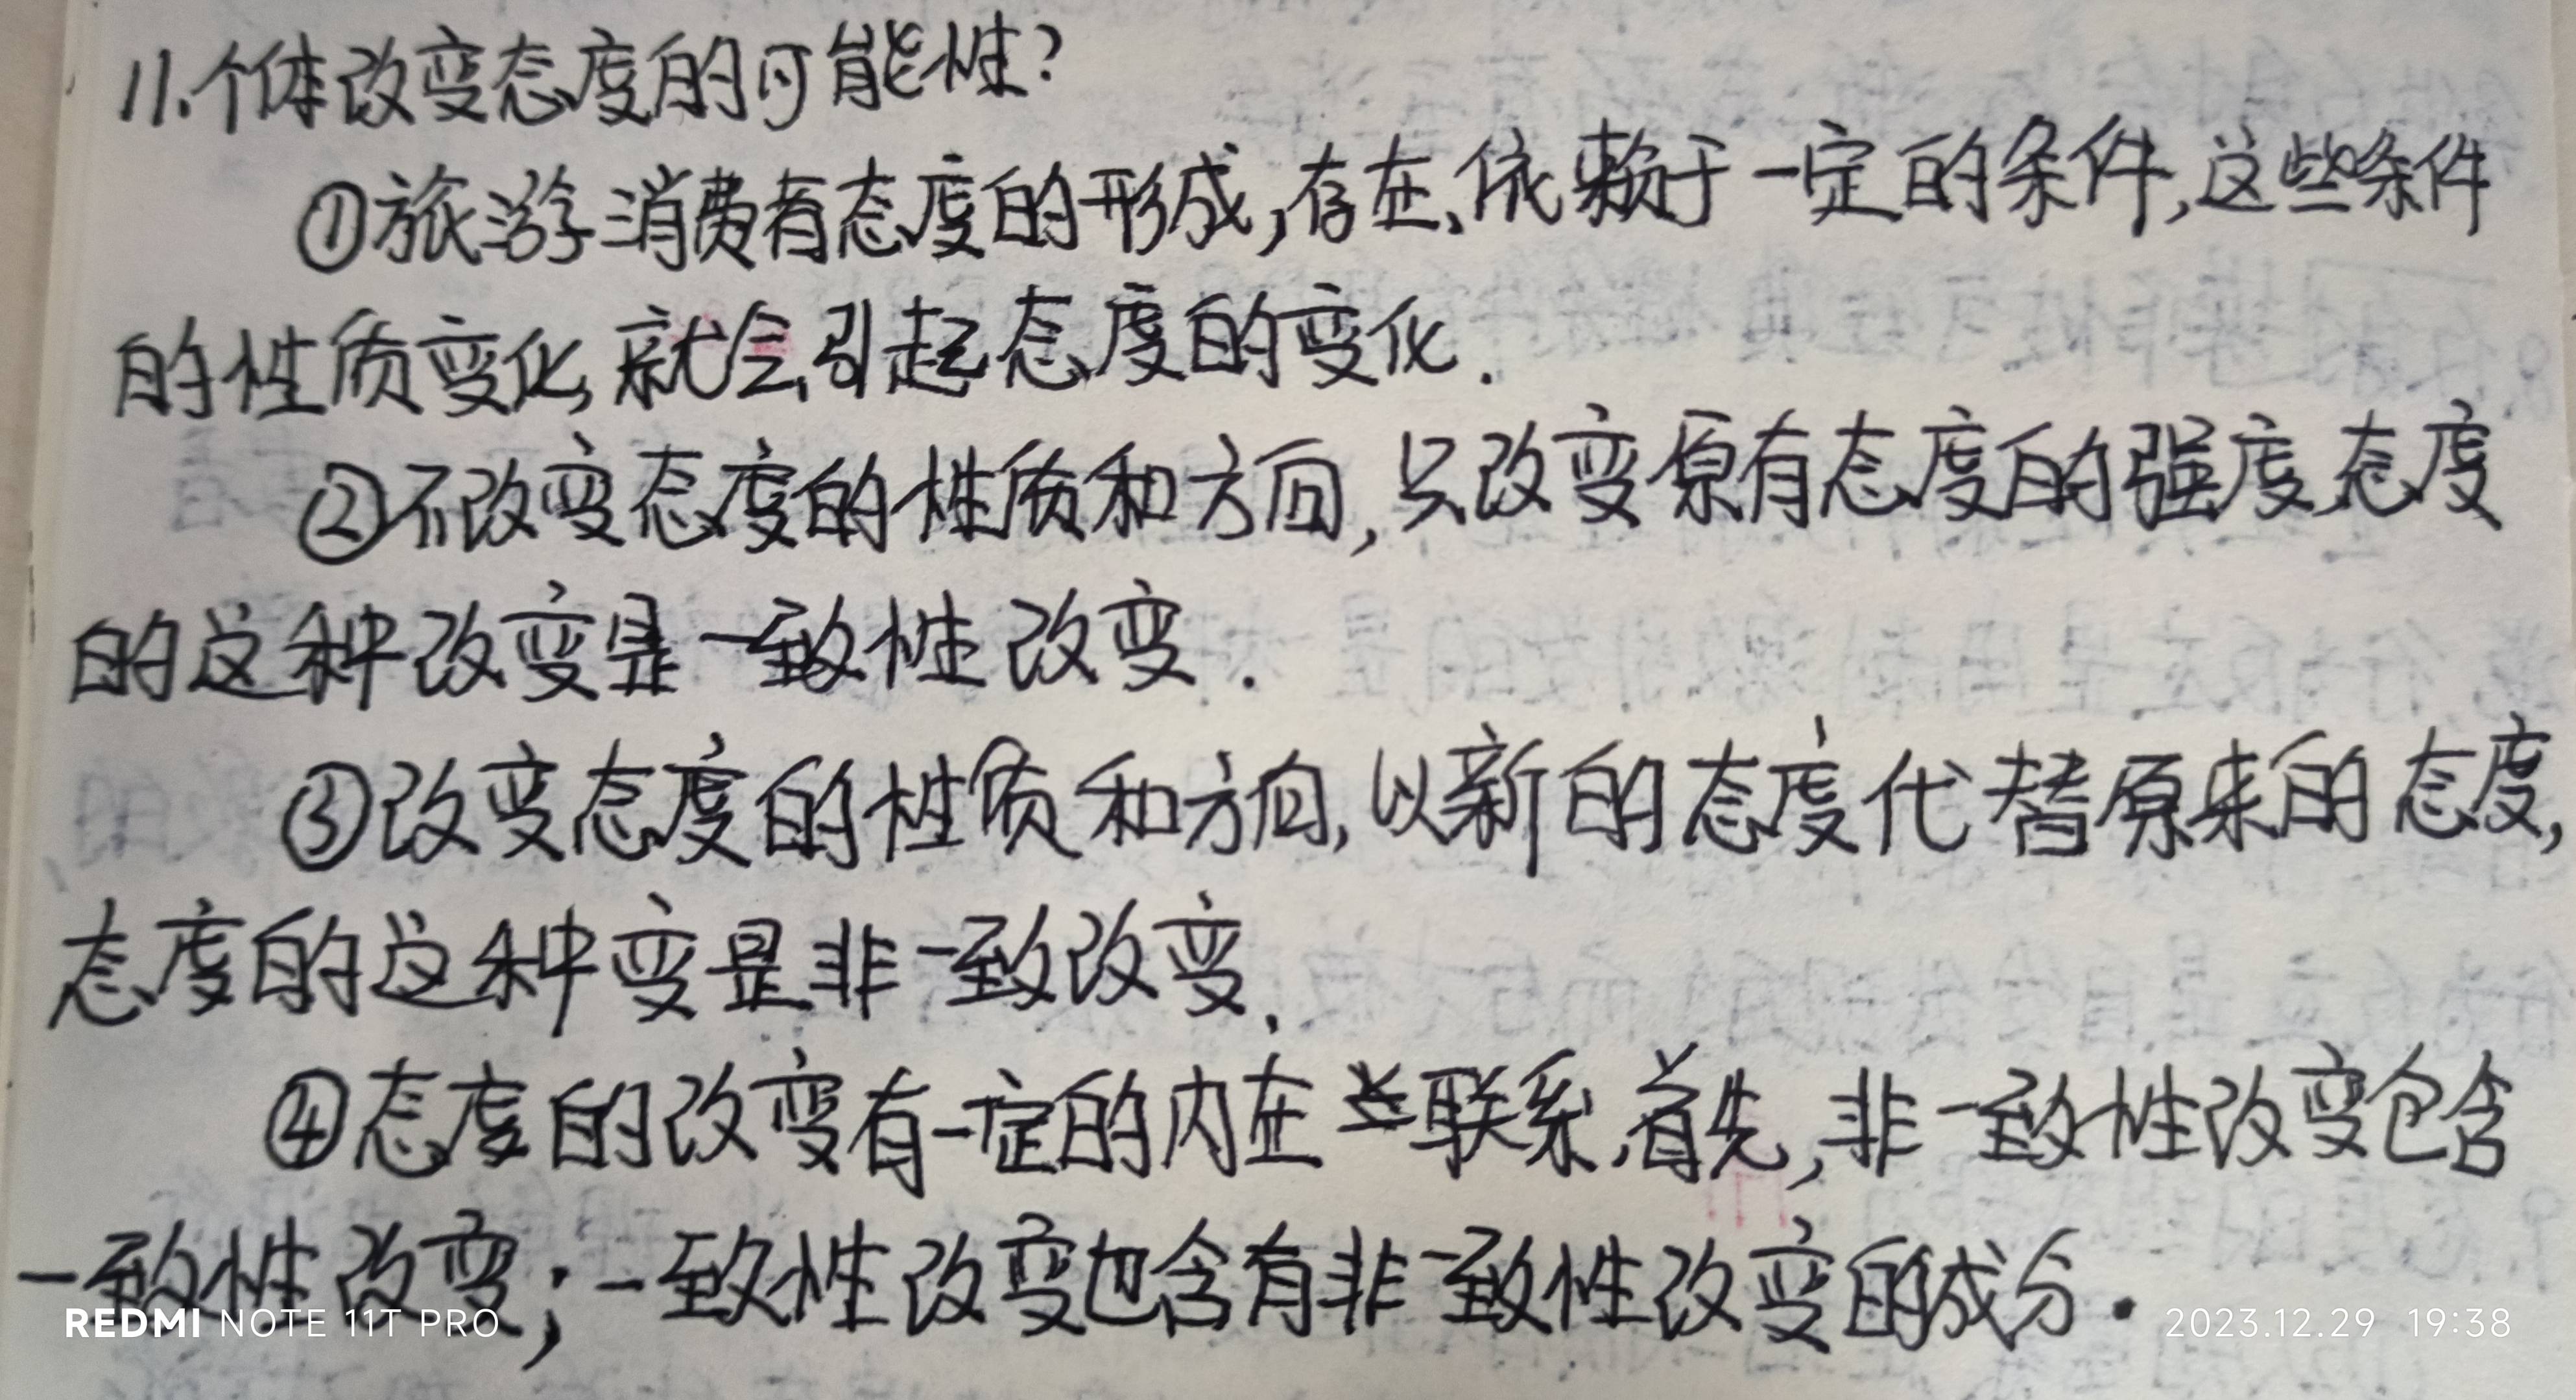 11.个体改变态度的可能性?
①旅游消费者态度的形成,存在、依赖于一定的条件,这些条件
的性质变化,就会引起态度的变化.
②不改变态度的性质和方向,只改变原有态度的强度,态度
的这种改变是一致性改变.
③改变态度的性质和方向,以新的态度代替原来的态度,
态度的这种变是非一致改变.
④态度的改变有一定的内在联系,首先,非一致性改变包含
一致性改变;一致性改变包含有非一致性改变的成分.
REDMI NOTE 11T PRO
2023.12.29 19:38